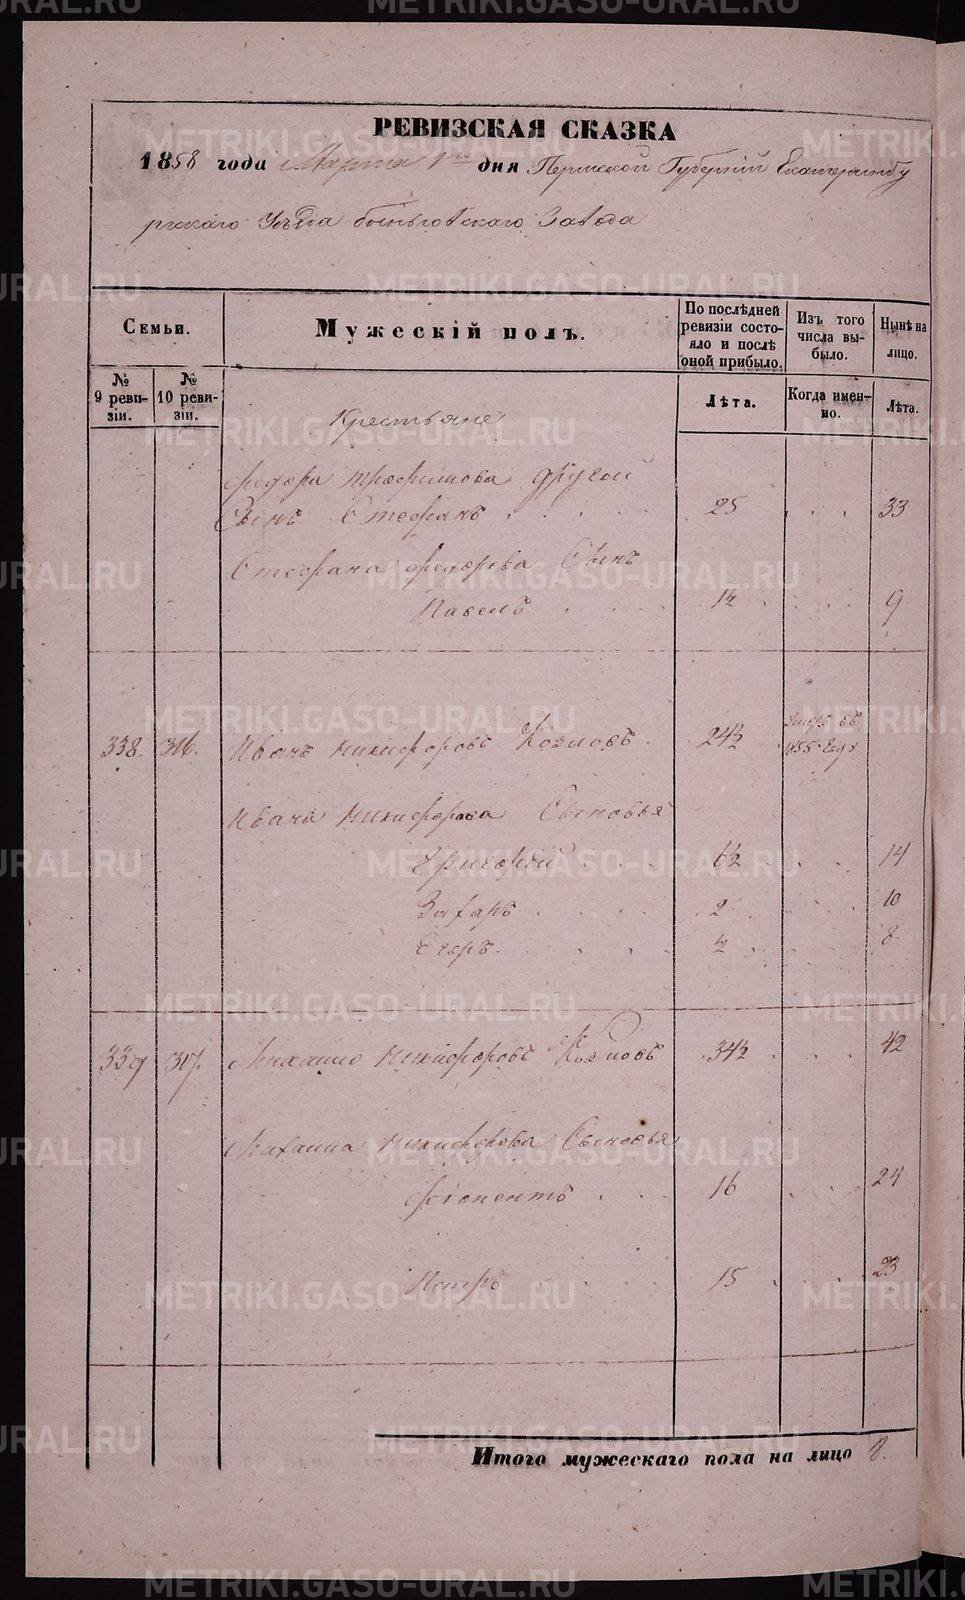 РЕВИЗСКАЯ СКАЗКА
1858 года Марта 1го дня Пермской Губернии Екатеринбу
ргскаго Уезда Быньговскаго Завода
Семьи.
Мужескій полъ.
По послѣдней ревизіи состояло и послѣ оной прибыло.
Изъ того числа выбыло.
Нынѣ на лицо.
№ 9 ревизіи.
№ 10 ревизіи.
Лѣта.
Когда именно.
Лѣта.
Крестьяне
Федора Трофимова другой
Сынъ Стефанъ 25 33
Стефана Федорова Сынъ
Павелъ 1½ 9
338. 316. Иванъ Никифоровъ Козловъ. 24½ Умеръ въ 1855 Году
Ивана Никифорова Сыновья
Григорій 6½ 14
Захаръ 2 10
Егоръ. ½ 8
339 317. Михаило Никифоровъ Козловъ 34½ 42
Михаила Никифорова Сыновья
Феопентъ 16 24
Петръ 15 23
Итого мужескаго пола на лицо 8.
METRIKI.GASO-URAL.RU